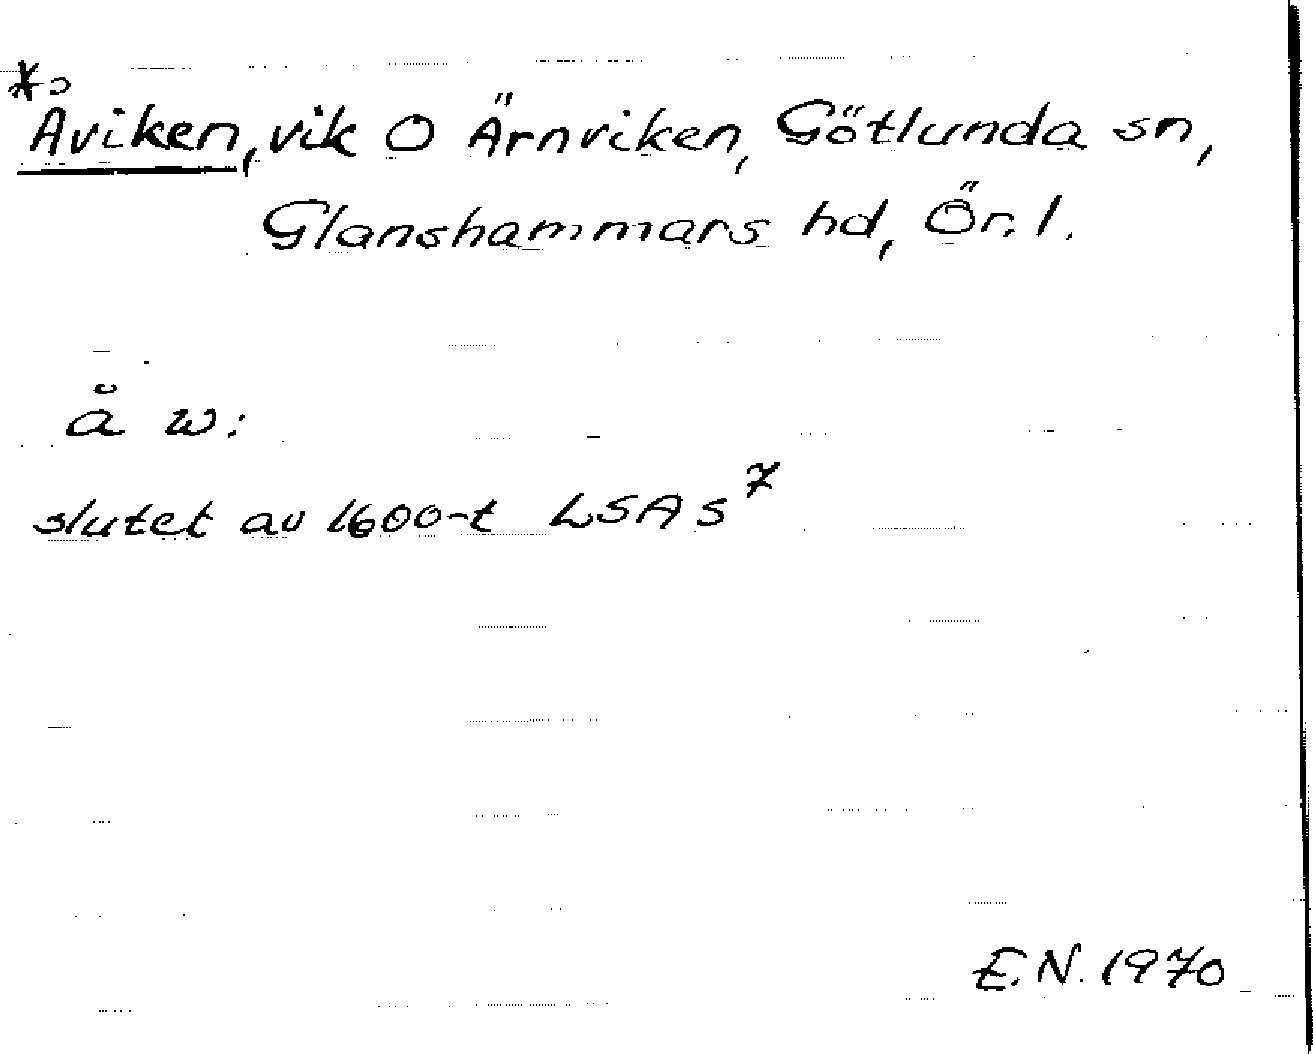 *Åviken, vik O Ärnviken, Götlunda sn,
Glanshammars hd, Ör. l.
å w:
slutet av 1600-t LSA S⁷
E.N. 1970